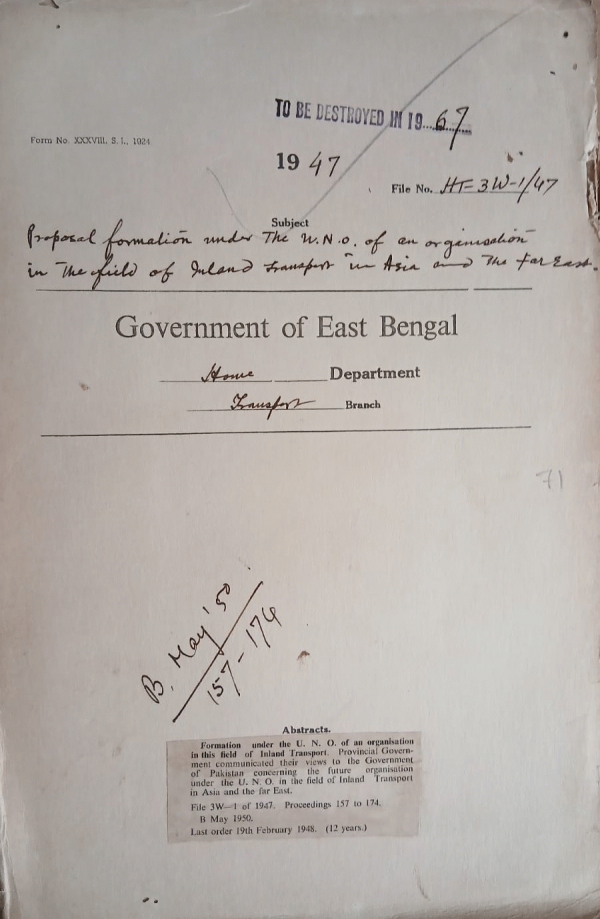 TO BE DESTROYED IN 19 67
Form No. XXXVIII. S. I., 1924
19 47
File No. HT-3W-1/47
Subject
Proposal formation under The U.N.O. of an organisation
in The field of Inland Transport in Asia and The Far East.
Government of East Bengal
Home Department
Transport Branch
71
B. May '50
157-174
Abstracts.
Formation under the U. N. O. of an organisation
in this field of Inland Transport. Provincial Govern-
ment communicated their views to the Government
of Pakistan concerning the future organisation
under the U. N. O. in the field of Inland Transport
in Asia and the far East.
File 3W—1 of 1947. Proceedings 157 to 174.
B May 1950.
Last order 19th February 1948. (12 years.)